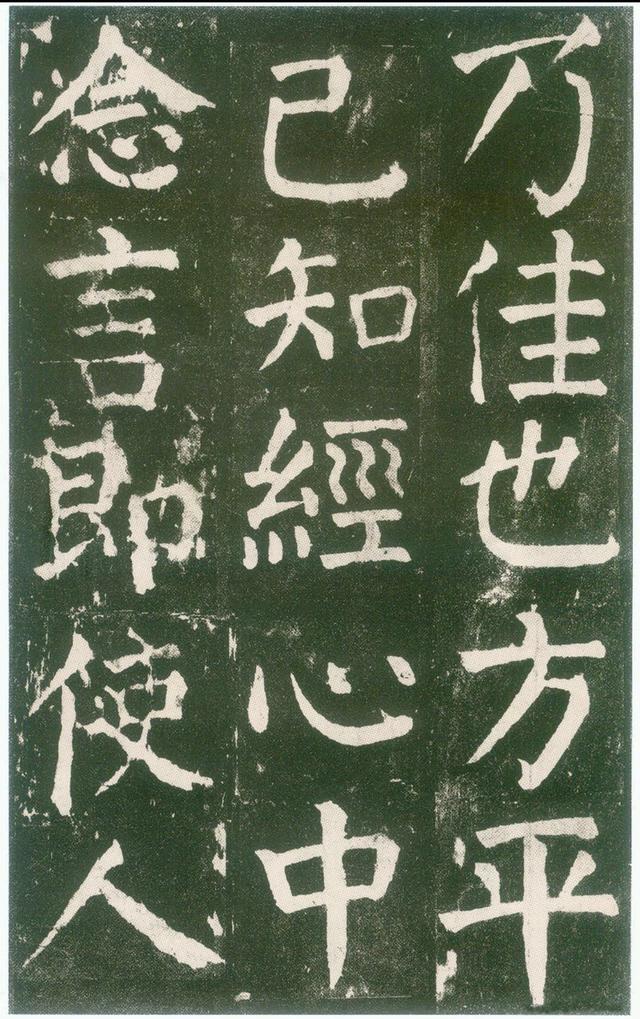 乃佳也方平
已知經心中
念言即使人